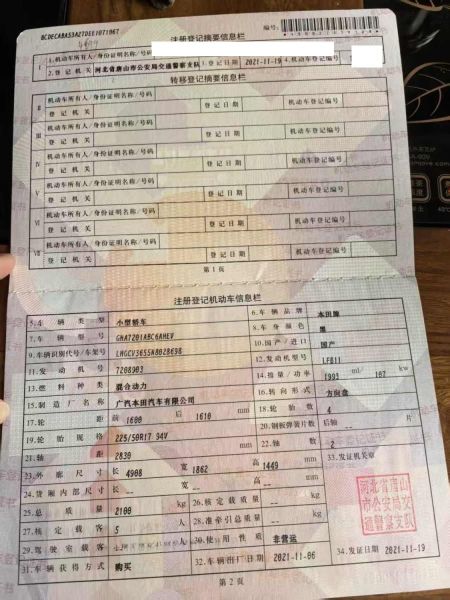 编号:
注册登记摘要信息栏
I 1.机动车所有人/身份证明名称/号码
2.登记机关 河北省唐山市公安局交通警察支队 3.登记日期 2021-11-19 4.机动车登记编号
转移登记摘要信息栏
II 机动车所有人/身份证明名称/号码
登记机关 登记日期 机动车登记编号
III 机动车所有人/身份证明名称/号码
登记机关 登记日期 机动车登记编号
IV 机动车所有人/身份证明名称/号码
登记机关 登记日期 机动车登记编号
V 机动车所有人/身份证明名称/号码
登记机关 登记日期 机动车登记编号
VI 机动车所有人/身份证明名称/号码
登记机关 登记日期 机动车登记编号
VII 机动车所有人/身份证明名称/号码
登记机关 登记日期 机动车登记编号
第1页
注册登记机动车信息栏
5.车辆类型 小型轿车 6.车辆品牌 本田牌
7.车辆型号 GHA7201ABC6AHEV 8.车身颜色 黑
9.车辆识别代号/车架号 LHGCV3655N8028698 10.国产/进口 国产
11.发动机号 7208903 12.发动机型号 LFB11
13.燃料种类 混合动力 14.排量/功率 1993 ml/ 107 kw
15.制造厂名称 广汽本田汽车有限公司 16.转向形式 方向盘
17.轮距 前 1600 后 1610 mm 18.轮胎数 4
19.轮胎规格 225/50R17 94V 20.钢板弹簧片数 后轴 -- 片
21.轴距 2830 mm 22.轴数 2
23.外廓尺寸 长 4908 宽 1862 高 1449 mm 33.发证机关章
24.货厢内部尺寸 长 -- 宽 -- 高 -- mm
25.总质量 2100 kg 26.核定载质量 -- kg
27.核定载客 5 人 28.准牵引总质量 -- kg
29.驾驶室载客 -- 人 30.使用性质 非营运
31.车辆获得方式 购买 32.车辆出厂日期 2021-11-06 34.发证日期 2021-11-19
河北省唐山
市公安局交
通警察支队
第2页